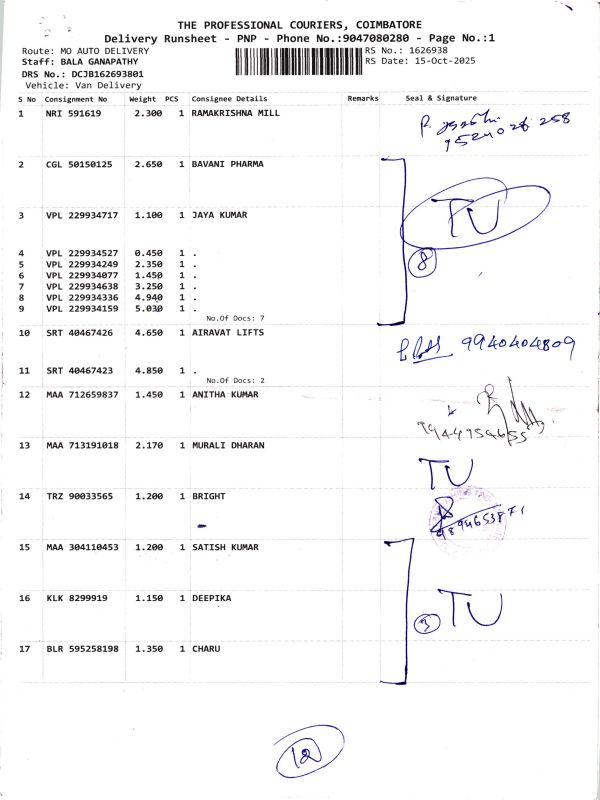 THE PROFESSIONAL COURIERS, COIMBATORE
Delivery Runsheet - PNP - Phone No.:9047080280 - Page No.:1
Route: MO AUTO DELIVERY RS No.: 1626938
Staff: BALA GANAPATHY RS Date: 15-Oct-2025
DRS No.: DCJB162693801
Vehicle: Van Delivery
S No Consignment No Weight PCS Consignee Details Remarks Seal & Signature
1 NRI 591619 2.300 1 RAMAKRISHNA MILL
2 CGL 50150125 2.650 1 BAVANI PHARMA
3 VPL 229934717 1.100 1 JAYA KUMAR TU
4 VPL 229934527 0.450 1 .
5 VPL 229934249 2.350 1 . 8
6 VPL 229934077 1.450 1 .
7 VPL 229934638 3.250 1 .
8 VPL 229934336 4.940 1 .
9 VPL 229934159 5.030 1 .
No.Of Docs: 7
10 SRT 40467426 4.650 1 AIRAVAT LIFTS 9940404809
11 SRT 40467423 4.850 1 .
No.Of Docs: 2
12 MAA 712659837 1.450 1 ANITHA KUMAR
13 MAA 713191018 2.170 1 MURALI DHARAN TU
14 TRZ 90033565 1.200 1 BRIGHT 9894653871
15 MAA 304110453 1.200 1 SATISH KUMAR
16 KLK 8299919 1.150 1 DEEPIKA 3 TU
17 BLR 595258198 1.350 1 CHARU
12